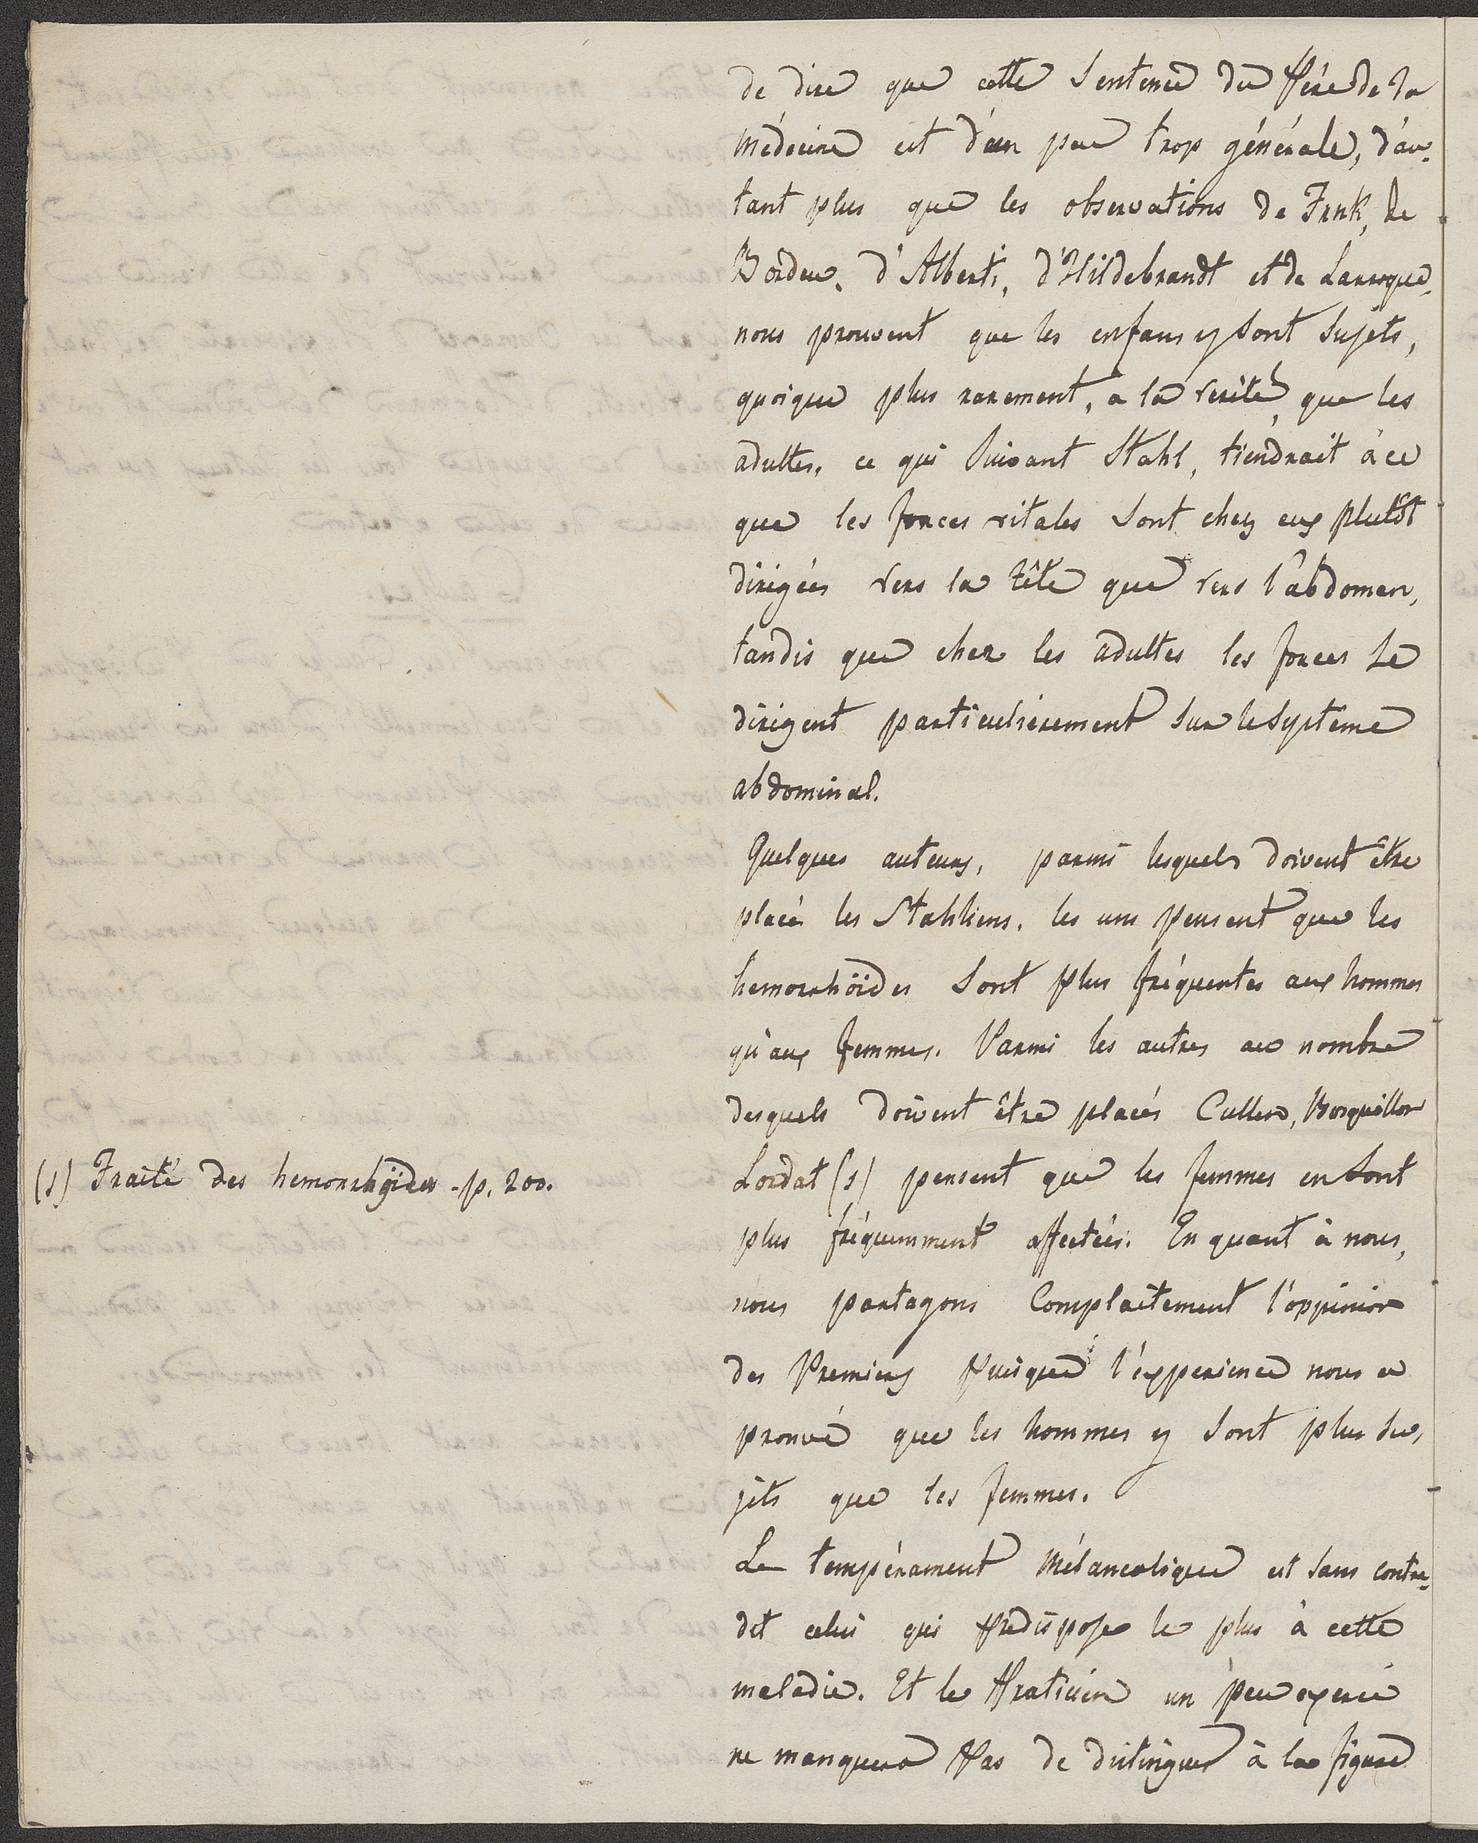 de dire que cette Sentence du Père de la
médecine est d'un peu trop générale, d'au-
tant plus que les observations de Frnk, de
Bordeu, d'Alberti, d'Hildebrandt et de Larroque,
nous prouvent que les enfans y sont Sujets,
quoique plus rarement, a la verité, que les
adultes, ce qui Suivant Stahl, tiendrait à ce
que les forces vitales Sont chez eux plutôt
dirigées vers la tête que vers l'abdomen,
tandis que chez les adultes les forces se
dirigent particulièrement sur le système
abdominal.
Quelques auteurs, parmi lesquels doivent être
placé les Stahliens, les uns pensent que les
hemorrhöides Sont plus fréquentes aux hommes
qu'aux femmes. Parmi les autres au nombre
desquels doivent être placés Cullen, Bosquillon
(1) Traité des hemorrhoïdes - p. 200.
Lordat (1) pensent que les femmes en Sont
plus fréquemment affectées. En quant à nous,
nous partagons Complaitement l'oppinion
des Premiers puisque l'éxperience nous a
prouvé que les hommes y sont plus su-
jets que les femmes.
Le tempérament Mélancolique est sans contre-
dit celui qui prédispose le plus à cette
maladie. Et le Praticien un peu exercé
ne manquera pas de distinguer à la figure